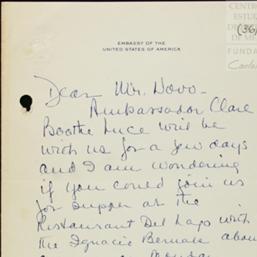 CENTRO
ESTU
DE
DE M
(36)
FUNDA
Carlos
EMBASSY OF THE
UNITED STATES OF AMERICA
Dear Mr. Novo -
Ambassador Clare
Boothe Luce will be
with us for a few days
and I am wondering
if you could join us
for supper at the
Restaurant Del Lago with
the Ignacio Bernals about
Monday